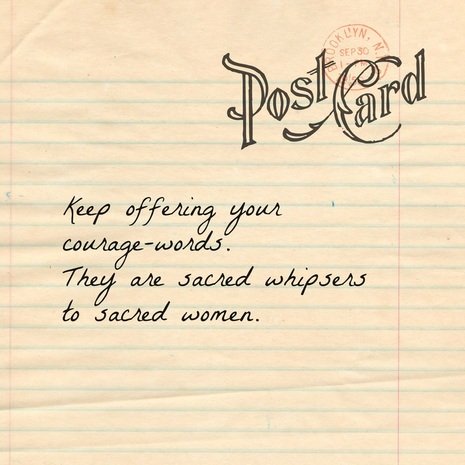 BROOKLYN, N.
SEP 30
Post Card
Keep offering your
courage-words.
They are sacred whipsers
to sacred women.